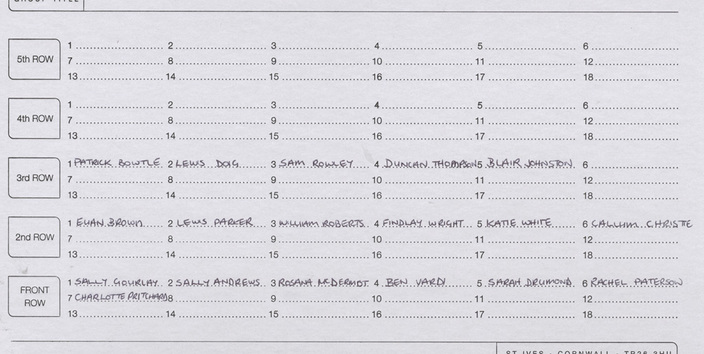 GROUP TITLE
5th ROW
1 2 3 4 5 6
7 8 9 10 11 12
13 14 15 16 17 18
4th ROW
1 2 3 4 5 6
7 8 9 10 11 12
13 14 15 16 17 18
3rd ROW
1 PATRICK BOWTLE 2 LEWIS DOIG 3 SAM ROWLEY 4 DUNCAN THOMPSON 5 BLAIR JOHNSTON 6
7 8 9 10 11 12
13 14 15 16 17 18
2nd ROW
1 EUAN BROWN 2 LEWIS PARKER 3 WILLIAM ROBERTS 4 FINDLAY WRIGHT 5 KATIE WHITE 6 CALLUM CHRISTE
7 8 9 10 11 12
13 14 15 16 17 18
FRONT ROW
1 SALLY GOURLAY 2 SALLY ANDREWS 3 ROSANA McDERMOT 4 BEN VARDY 5 SARAH DRUMOND 6 RACHEL PATERSON
7 CHARLOTTE PRITCHARD 8 9 10 11 12
13 14 15 16 17 18
ST IVES - CORNWALL - TR26 3HU